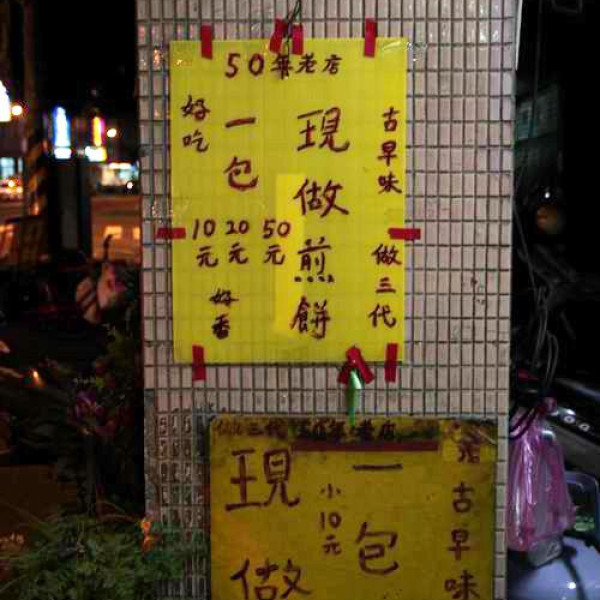 50年老店
古早味 做三代
現做煎餅
一包
50元
20元
10元
好吃
好香
做三代 50年老店
古早味
一包
小10元
現做